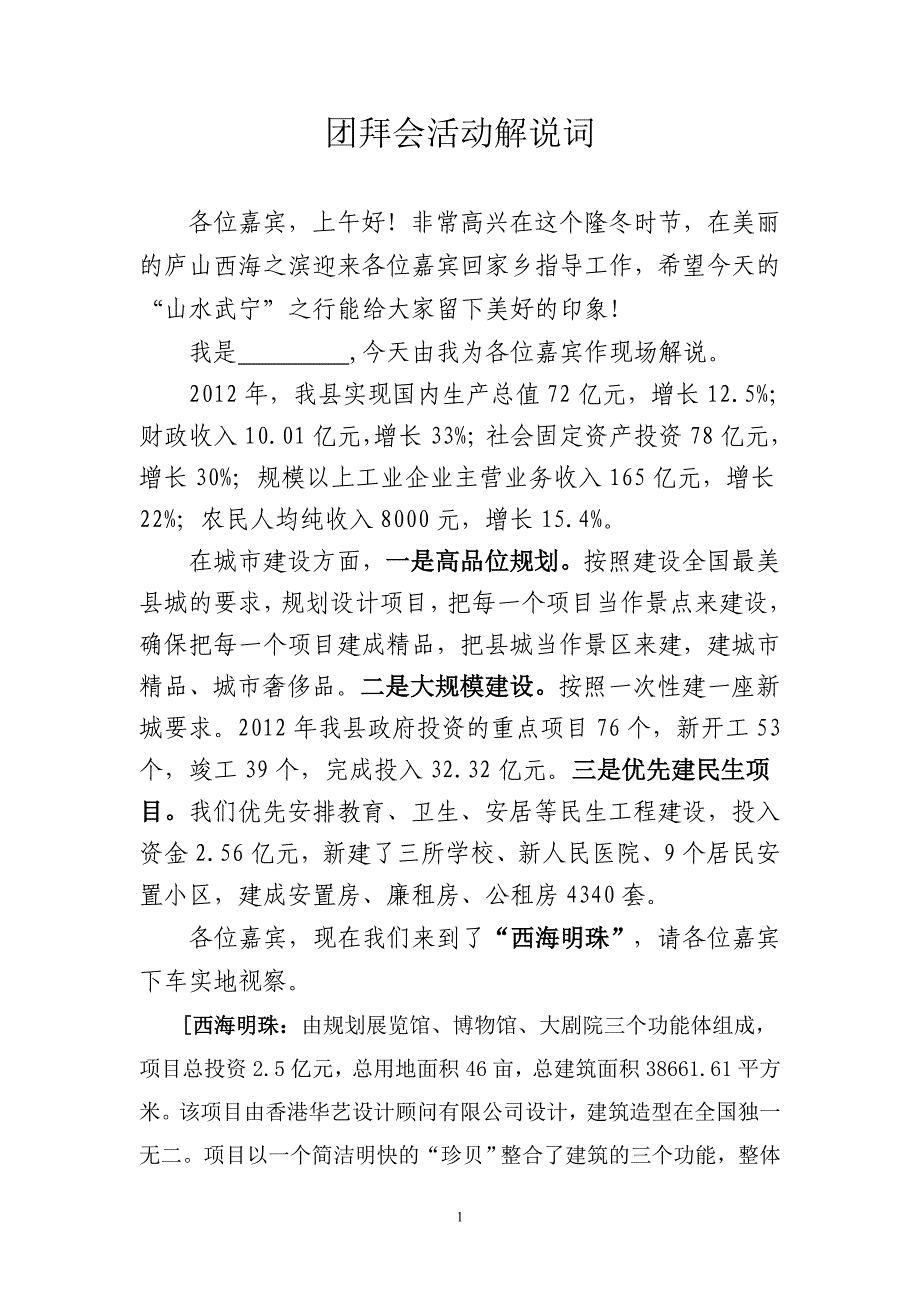 团拜会活动解说词
各位嘉宾，上午好！非常高兴在这个隆冬时节，在美丽
的庐山西海之滨迎来各位嘉宾回家乡指导工作，希望今天的
“山水武宁”之行能给大家留下美好的印象！
我是_________,今天由我为各位嘉宾作现场解说。
2012 年，我县实现国内生产总值 72 亿元，增长 12.5%;
财政收入 10.01 亿元,增长 33%; 社会固定资产投资 78 亿元，
增长 30%; 规模以上工业企业主营业务收入 165 亿元，增长
22%; 农民人均纯收入 8000 元，增长 15.4%。
在城市建设方面，一是高品位规划。按照建设全国最美
县城的要求,规划设计项目,把每一个项目当作景点来建设,
确保把每一个项目建成精品，把县城当作景区来建，建城市
精品、城市奢侈品。二是大规模建设。按照一次性建一座新
城要求。2012 年我县政府投资的重点项目 76 个，新开工 53
个，竣工 39 个，完成投入 32.32 亿元。三是优先建民生项
目。我们优先安排教育、卫生、安居等民生工程建设，投入
资金 2.56 亿元，新建了三所学校、新人民医院、9 个居民安
置小区，建成安置房、廉租房、公租房 4340 套。
各位嘉宾，现在我们来到了“西海明珠”，请各位嘉宾
下车实地视察。
[西海明珠：由规划展览馆、博物馆、大剧院三个功能体组成，
项目总投资 2.5 亿元，总用地面积 46 亩，总建筑面积 38661.61 平方
米。该项目由香港华艺设计顾问有限公司设计，建筑造型在全国独一
无二。项目以一个简洁明快的“珍贝”整合了建筑的三个功能，整体
1